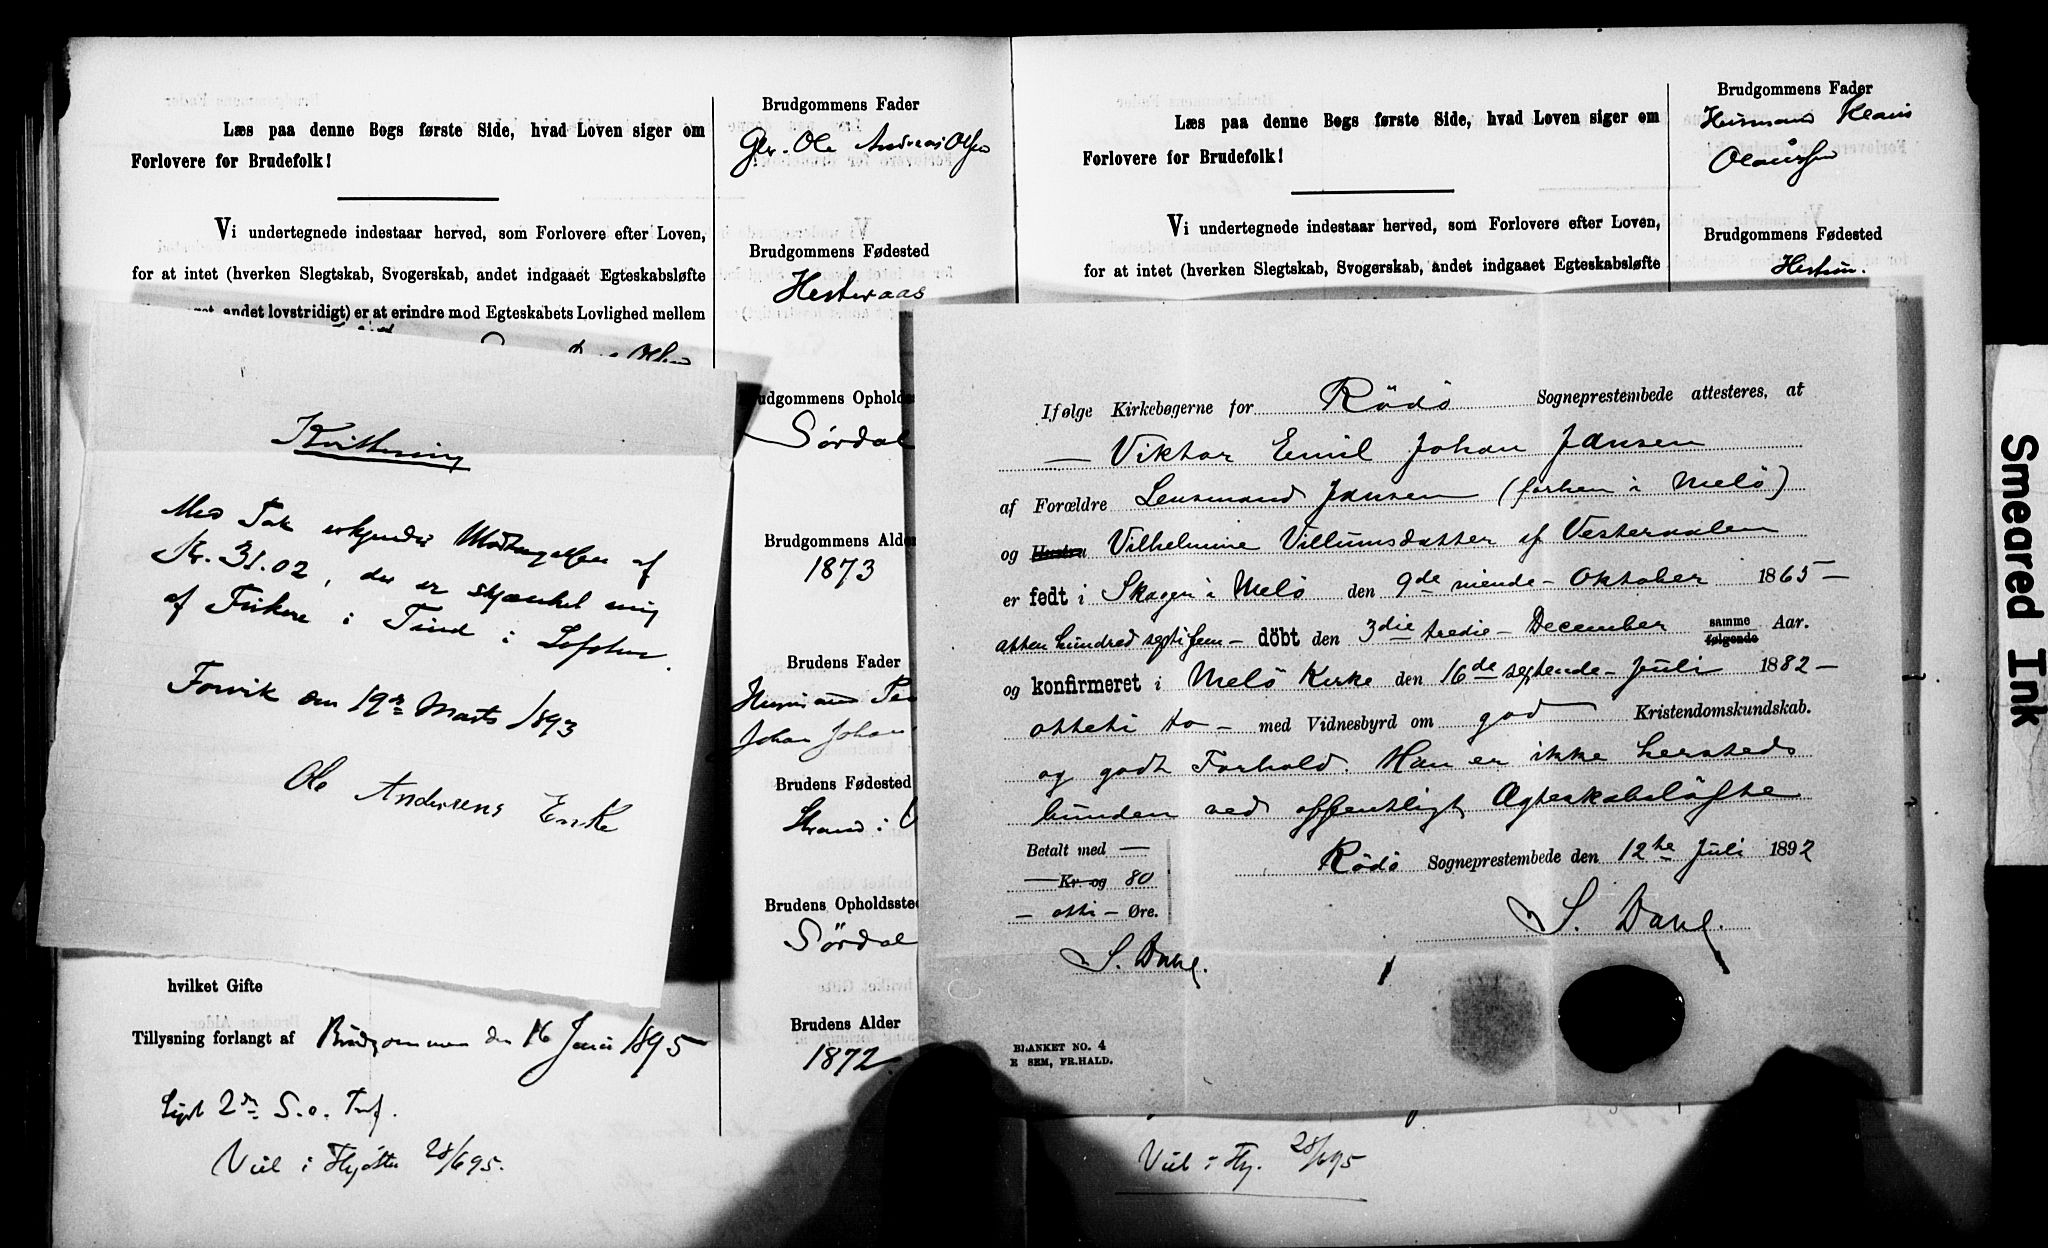 Læs paa denne Bogs første Side, hvad Loven siger om
Forlovere for Brudefolk!
Vi undertegnede indestaar herved, som Forlovere efter Loven,
for at intet (hverken Slegtskab, Svogerskab, andet indgaaet Egteskabsløfte
andet lovstridigt) er at erindre mod Egteskabets Lovlighed mellem
Kvittering
Med Tak erkjendes Modtagelsen af
Kr. 31.02, der er skjænket mig
af Fiskere i Tind i Lofoten.
Forvik den 19de Marts 1893
Ole Andersens Enke
hvilket Gifte
Tillysning forlangt af Brudgommen den 16 Juni 1895
Lyst 2den S. e. Tref.
Viel i Thjøtta 28/6 95.
Brudgommens Fader
Ole Andreas Olsen
Brudgommens Fødested
Hesteraas
Brudgommens Opholds
Sørdal
Brudgommens Alder
1873
Brudens Fader
Johan Johan
Brudens Fødested
Strand i
Brudens Opholdssted
Sørdal
Brudens Alder
1872
Læs paa denne Bogs første Side, hvad Loven siger om
Forlovere for Brudefolk!
Vi undertegnede indestaar herved, som Forlovere efter Loven,
for at intet (hverken Slegtskab, Svogerskab, andet indgaaet Egteskabsløfte
Brudgommens Fader
Hermann Klaus
Olaussen
Brudgommens Fødested
Ifølge Kirkebøgerne for Rödö Sogneprestembede attesteres, at
— Viktor Emil Johan Jansen
af Forældre Lensmand Jansen (forhen i Melö)
og Hustru Vilhelmine Villumsdatter af Vesteraalen
er født i Skagen i Melö den 9de niende – Oktober 1865 –
atten hundred sexti fem – döbt den 3die tredie – December samme følgende Aar.
og konfirmeret i Melö Kirke den 16de sextende – Juli 1882 –
otteti to – med Vidnesbyrd om god Kristendomskundskab.
og godt Forhold. Han er ikke hersteds
bunden ved offentligt Ægteskabslöfte
Rödö Sogneprestembede den 12te Juli 1892
S. Dahl.
Betalt med —
— Kr. og 80
— otti — Øre.
S. Dahl.
BLANKET NO. 4
E SEM, FR.HALD.
Viel i Thj. 28/6 95
Smeared Ink